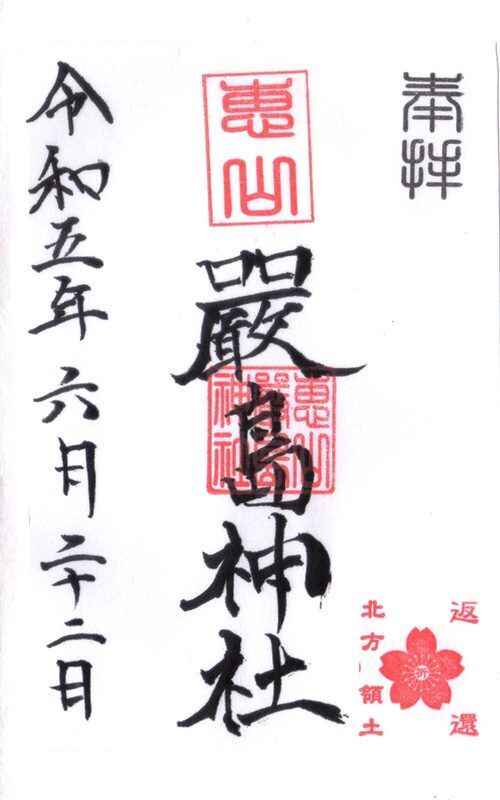 奉拝
返還
北方領土
祈
恵山
嚴島神社
恵山
嚴島
神社
令和五年六月二十二日